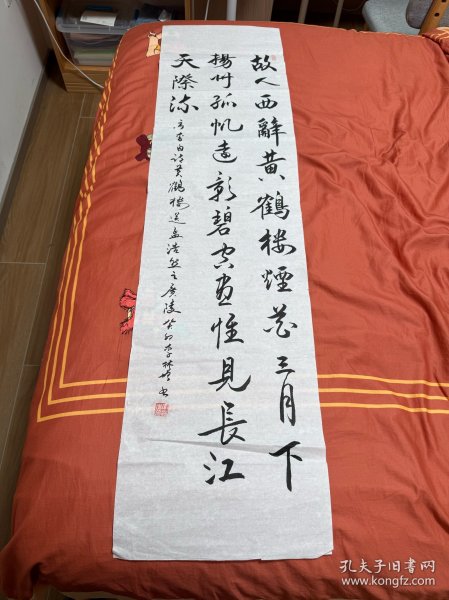 故人西辭黄鶴楼煙花三月下
揚州孤帆遠影碧空盡惟見長江
天際流 
李白詩黄鶴樓送孟浩然之廣陵癸卯李林
孔夫子旧书网
www.kongfz.com